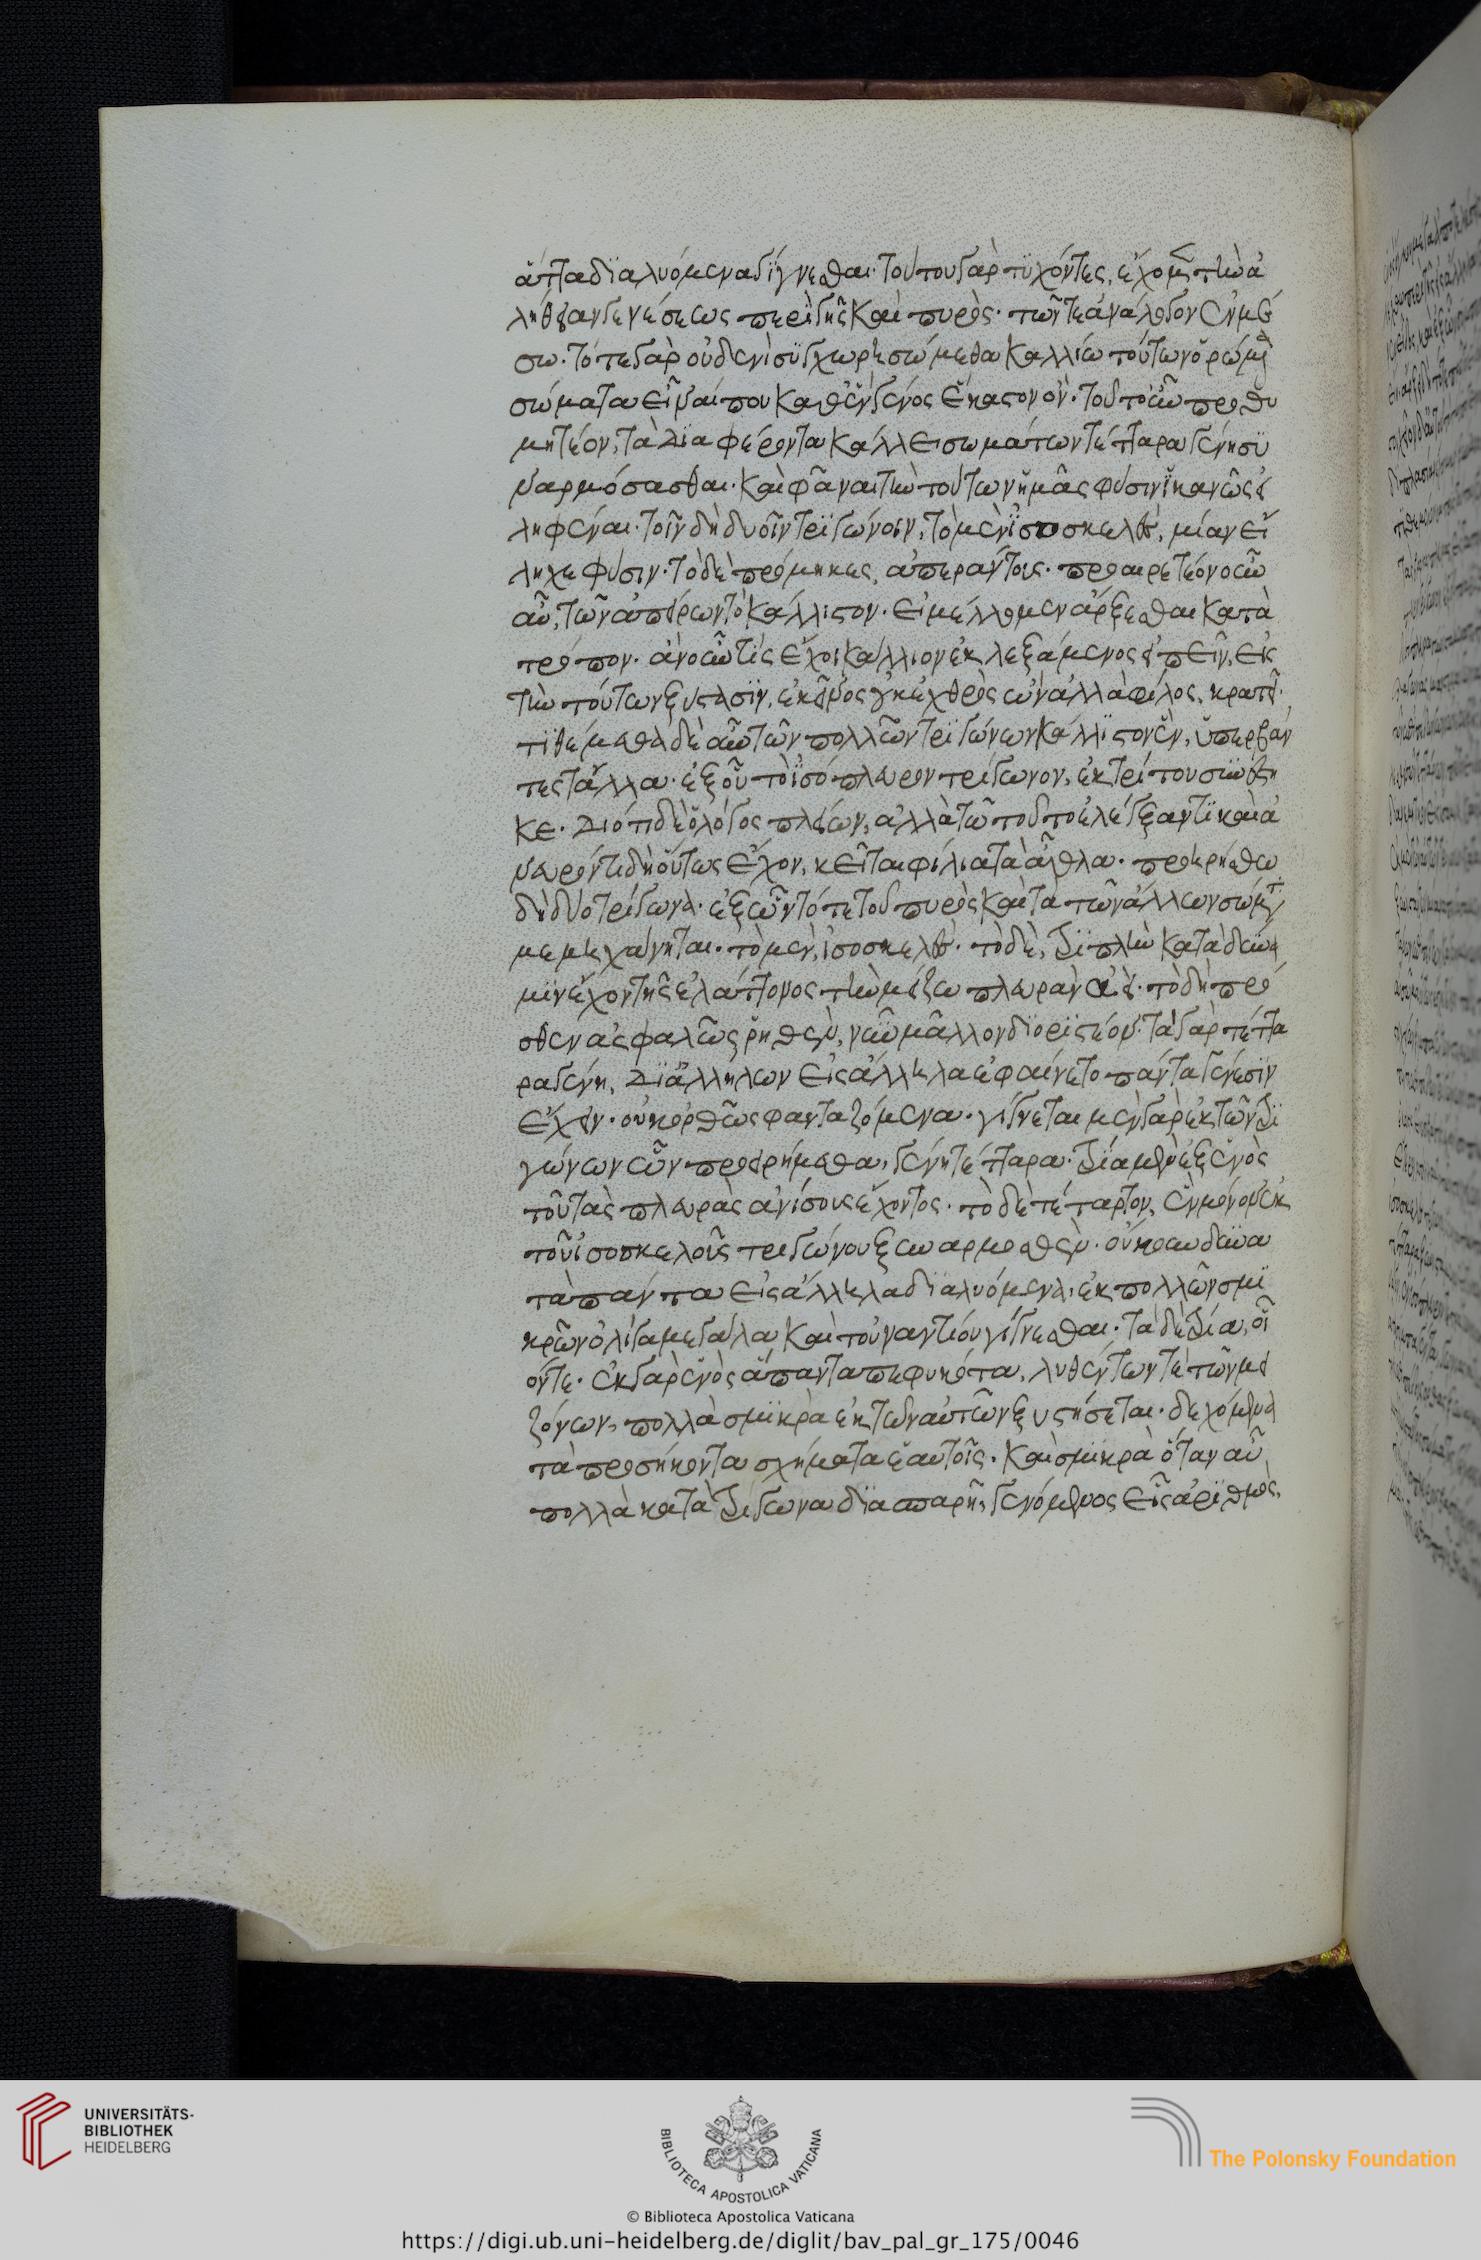 ἅττα διαλυόμενα γίγνεσθαι· τούτου γὰρ τυχόντες, ἔχομεν τὴν ἀ
λήθειαν γενέσεως περὶ γῆς καὶ πυρὸς· τῶν τε ἀνάλογον ἐν μέ
σω· τότε γὰρ οὐδενὶ συγχωρησώμεθα καλλίω τούτων ὁρώμενα
σώματα εἶναί που καθ' ἓν γένος ἕκαστον ὂν· τοῦτο οὖν προθυ
μητέον, τὰ διαφέροντα κάλλει σωμάτων τέτταρα γένη συ
ναρμόσασθαι· καὶ φᾶναι τὴν τούτων ἡμᾶς φύσιν ἱκανῶς εἰ
ληφέναι· τοῖν δὴ δυοῖν τριγώνοιν, τὸ μὲν ἰσοσκελὲς, μίαν εἴ
ληχε φύσιν· τὸ δὲ πρόμηκες, ἀπεράντους· προαιρετέον οὖν
αὖ, τῶν ἀπείρων τὸ κάλλιστον· εἰ μέλλομεν ἄρξεσθαι κατὰ
τρόπον· ἂν οὖν τίς ἔχοι κάλλιον ἐκλεξάμενος εἰπεῖν, εἰς
τὴν τούτων ξυστασιν, ἐκεῖνος οὐκ ἐχθρὸς ὢν ἀλλὰ φίλος, κρατεῖ·
τιθέμεθα δὲ οὖν τῶν πολλῶν τριγώνων κάλλιστον ἓν, ὑπερβάν
τες τἄλλα· ἐξ οὗ τὸ ἰσόπλευρον τρίγωνον, ἐκ τρίτου συνέστη
κε· διότι δὲ ὁ λόγος πλείων, ἀλλὰ τῶ τοῦτο ἐλέγξαντι καὶ ἀ
νευρόντι δὴ οὕτως ἔχον, κεῖται φίλια τὰ ἆθλα· προηρήσθω
δὴ δύο τρίγωνα· ἐξ ὧν τό τε τοῦ πυρὸς καὶ τὰ τῶν ἄλλων σώματα
μεμηχάνηται· τὸ μὲν, ἰσοσκελὲς· τὸ δὲ, τριπλῆν κατὰ δύνα
μιν ἔχον τῆς ἐλάττονος τὴν μείζω πλευρὰν ἀεὶ· τὸ δὴ πρό
σθεν ἀσφαλῶς ῥηθὲν, νῦν μᾶλλον διοριστέον· τὰ γὰρ τέττα
ρα γένη, δι' ἀλλήλων εἰς ἄλληλα ἐφαίνετο πάντα γένεσιν
ἔχειν· οὐκ ὀρθῶς φανταζόμενα· γίγνεται μὲν γὰρ ἐκ τῶν τρι
γώνων ὧν προειρήμεθα, γένη τέτταρα· τρία μὲν ἐξ ἑνὸς
τοῦ τὰς πλευρὰς ἀνίσους ἔχοντος· τὸ δὲ τέταρτον, ἓν μόνον ἐκ
τοῦ ἰσοσκελοῦς τριγώνου ξυναρμοσθὲν· οὔκουν δυνα
τὰ πάντα εἰς ἄλληλα διαλυόμενα· ἐκ πολλῶν σμι
κρῶν ὀλίγα μεγάλα καὶ τοὐναντίον γίγνεσθαι· τὰ δὲ τρία, οἷ
όν τε· ἐκ γὰρ ἑνὸς ἅπαντα πεφυκότα, λυθέντων τε τῶν μει
ζόνων, πολλὰ σμικρὰ ἐκ τῶν αὐτῶν ξυστήσεται· δεχόμενα
τὰ προσήκοντα σχήματα ἑαυτοῖς· καὶ σμικρὰ ὅταν αὖ
πολλὰ κατὰ τρίγωνα διασπαρῆ, γενόμενος εἷς ἀριθμὸς,
UNIVERSITÄTS-
BIBLIOTHEK
HEIDELBERG
BIBLIOTECA APOSTOLICA VATICANA
The Polonsky Foundation
© Biblioteca Apostolica Vaticana
https://digi.ub.uni-heidelberg.de/diglit/bav_pal_gr_175/0046